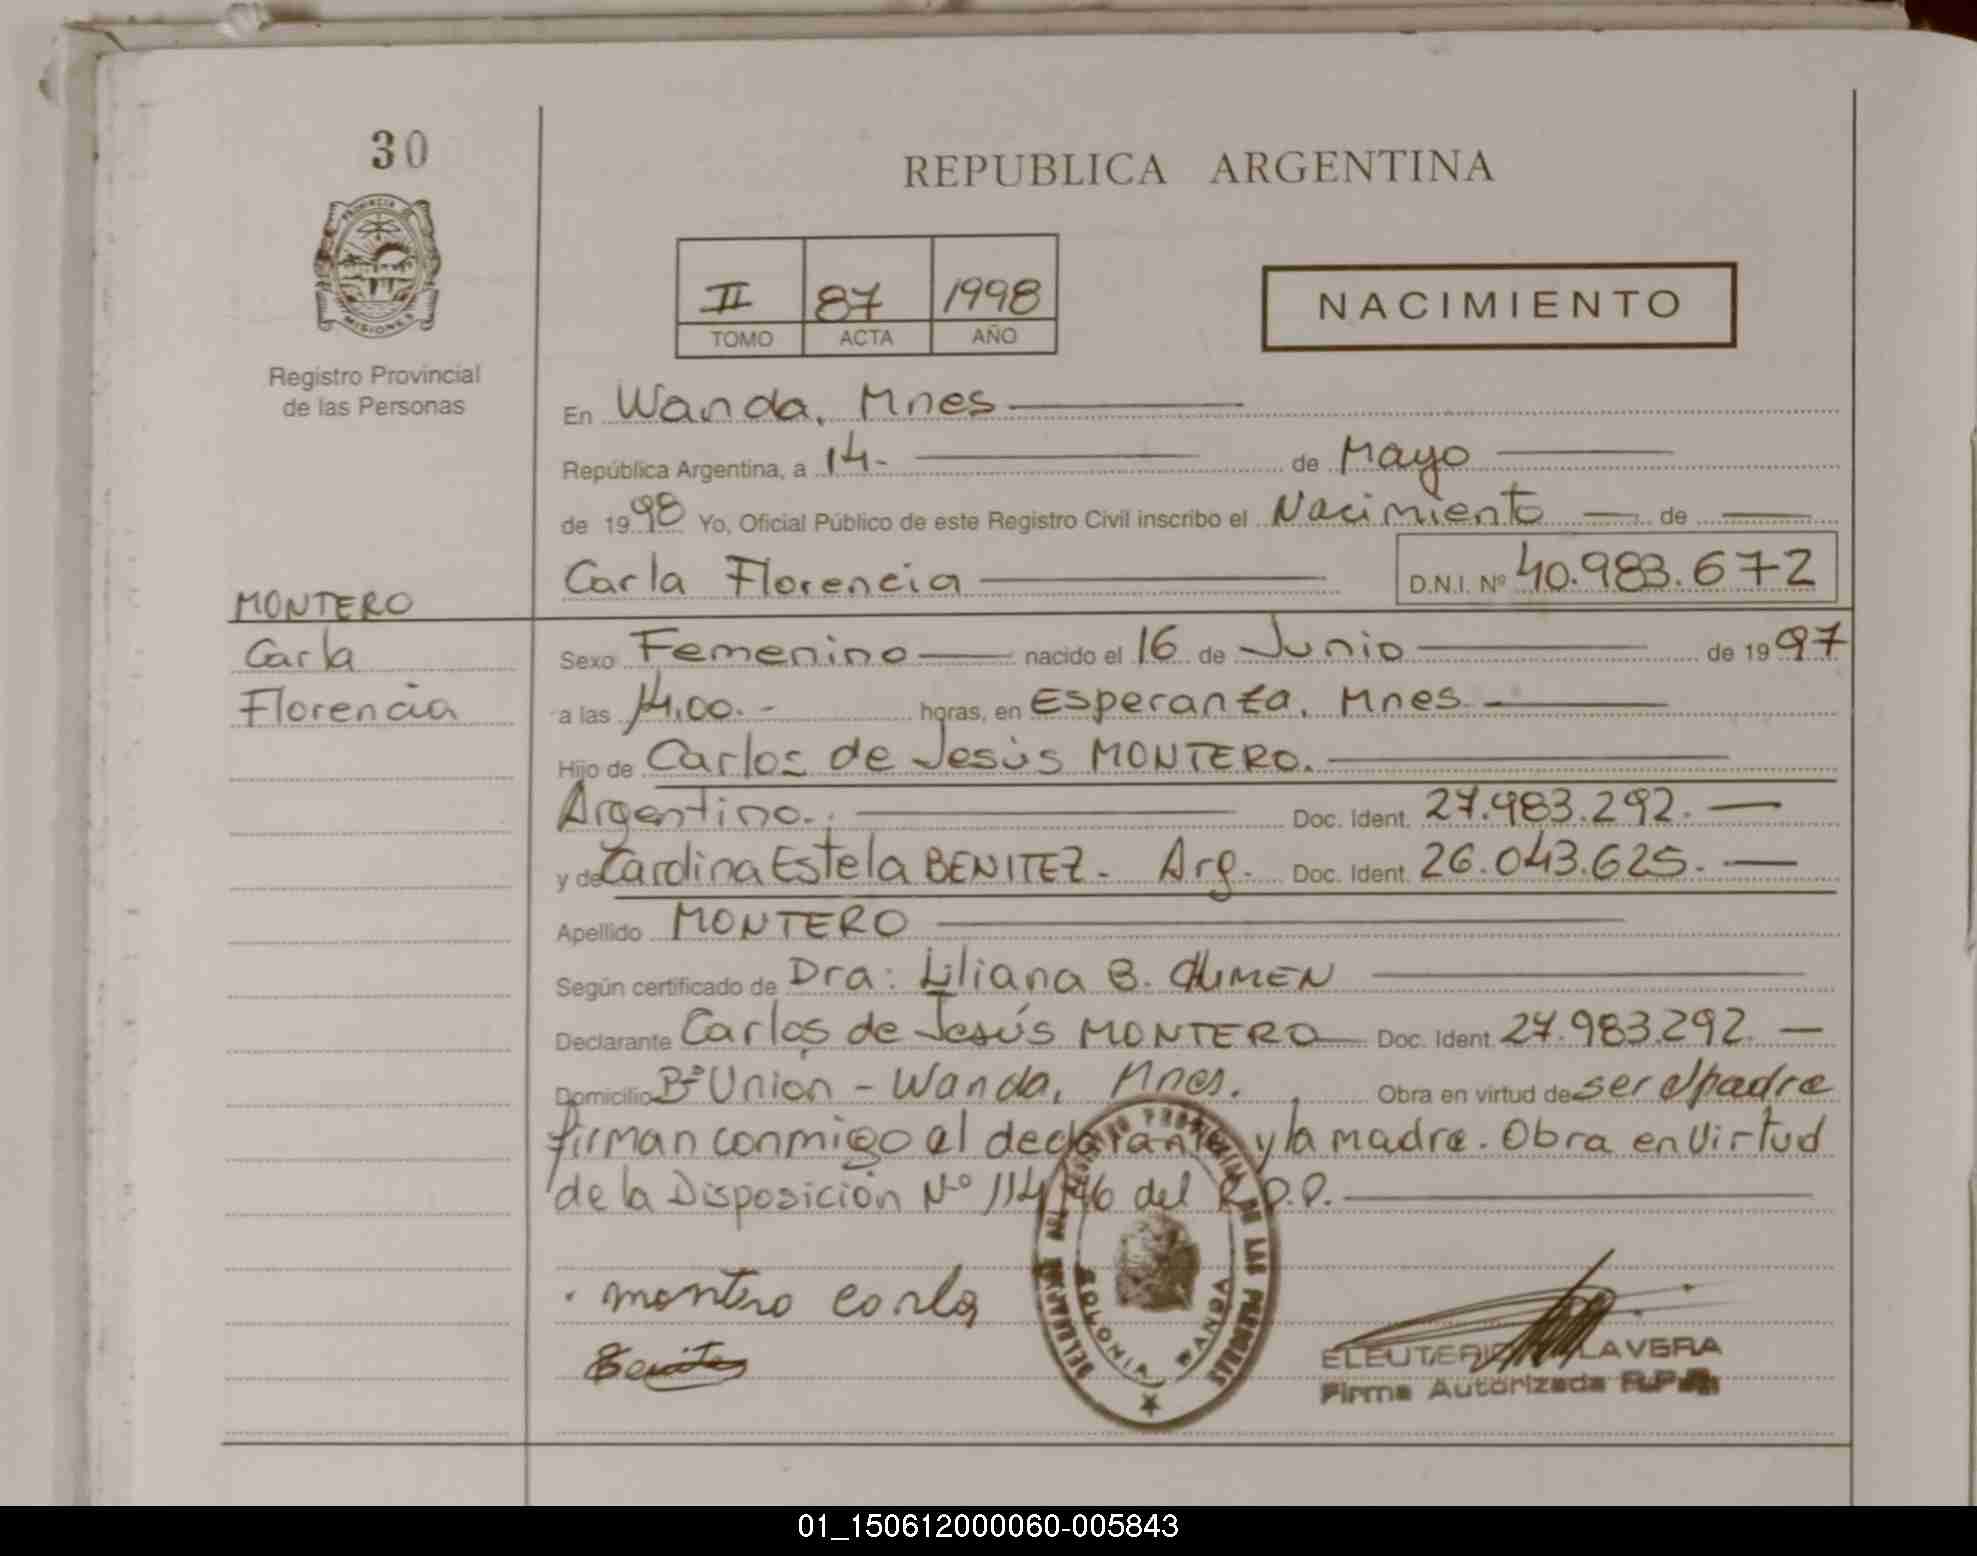 30
PROVINCIA DE
MISIONES
Registro Provincial
de las Personas
MONTERO
Carla
Florencia
REPUBLICA ARGENTINA
II 87 1998
TOMO ACTA AÑO
NACIMIENTO
En Wanda, Mnes
República Argentina, a 14.- de Mayo
de 1998 Yo, Oficial Público de este Registro Civil inscribo el Nacimiento de
Carla Florencia D.N.I. Nº 40.983.672
Sexo Femenino nacido el 16 de Junio de 1997
a las 14,00.- horas, en Esperanza, Mnes
Hijo de Carlos de Jesús MONTERO.
Argentino.. Doc. Ident. 27.983.292.
y de Estela BENITEZ - Arg. Doc. Ident. 26.043.625.
Apellido MONTERO
Según certificado de Dra: Liliana B.
Declarante Carlos de Jesús MONTERO Doc. Ident. 27.983.292.
Domicilio Bº Union - Wanda, Mnes. Obra en virtud de ser el padre
firman conmigo el declarante y la madre. Obra en Virtud
de la Disposición Nº del R.P.P.
montero carlos
Benitez
COLONIA WANDA
ELEUTERIO LAVERA
Firma Autorizada R.P.P.
01_150612000060-005843